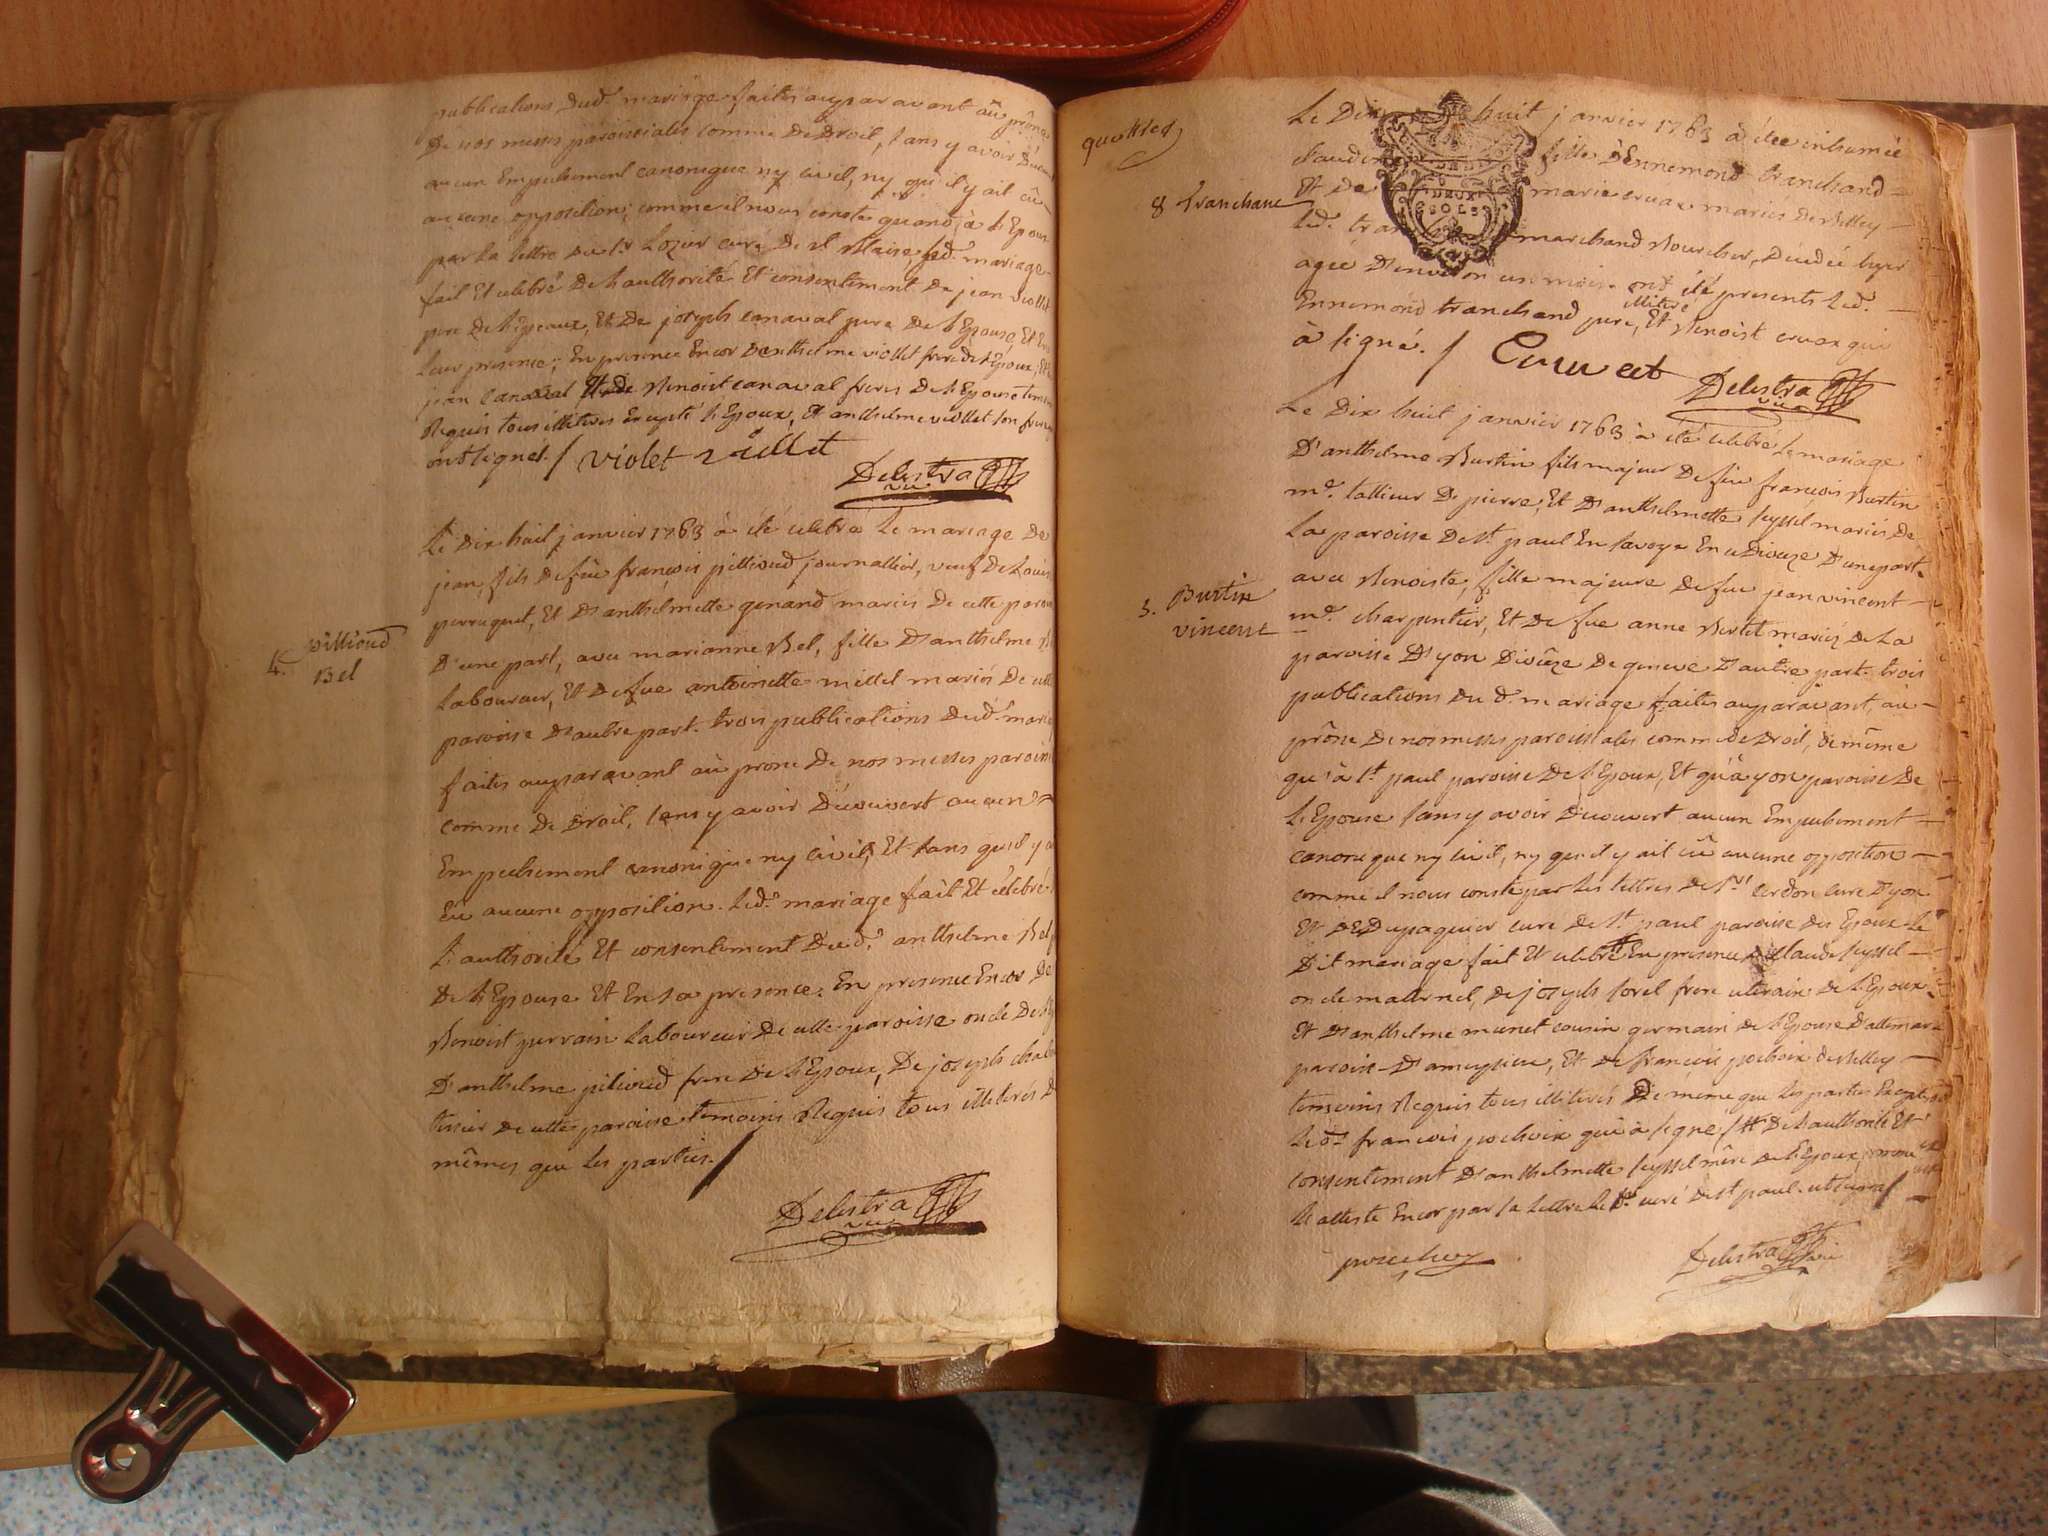 publications dud.t mariage faites auparavant au prône
De nos messes paroissiales comme De Droit, sans y avoir
aucun Empechement canonique ny civil, ny qu'il y ait eû
aucune opposition; comme il nous conste quand à l'Epoux
par la lettre du Sr Lozier curé De St Blaise led.t mariage
fait Et celebré De l'authorité Et consentement De jean viollet
pere De l'Epoux, Et De joseph canaval pere De l'Epouse, Et En
leur presence; En presence Encor D'anthelme viollet frere De l'Epoux, Et De
jean canaval Et De Benoist canaval freres De l'Epouse temoins
Requis tous illiterés Excepté l'Epoux, Et anthelme viollet son frere qui
ont signés./ violet viollet
Delestra
4. pillioud
Bel
Le Dix huit janvier 1763 à été celebré Le mariage De
jean, fils De feû françois pillioud journallier, veuf De Louise
perruquet, Et D'anthelmette genand mariés De cette paroisse
D'une part, avec marianne Bel, fille D'anthelme Bel
Laboureur, Et De fue antoinette mittel mariés De cette
paroisse D'autre part. trois publications dud.t mariage
faites auparavant au prone De nos messes paroissiales
comme De Droit, sans y avoir Decouvert aucun
Empechement canonique ny civil, Et sans qu'il y ait
Eû aucune opposition. Led.t mariage fait Et célebré De
L'authorité Et consentement Dud.t anthelme Bel pere
De l'Epouse Et En sa presence. En presence Encor De
Benoist perrain Laboureur De cette paroisse oncle De l'Epoux
D'anthelme pilioud frere De l'Epoux, De joseph
tissier De cette paroisse temoins Requis tous illiterés De
mêmes que les parties./
Delestra
8 tranchant
Le Dix huit janvier 1763 à étée inhumée
Claudine fille D'Ennemond tranchand
Et De marie cruax mariés De Belley
led.t tranchand marchand Boucher, Decedée hyer
agée D'environ un mois. ont été presents led.t
Ennemond tranchand pere, illiteré Et Benoist cruax qui
à signé./ Cruu
Delestra
DEUX
SOLS
5. Burtin
vincent
Le Dix huit janvier 1763 à été celebré Le mariage
D'anthelme Burtin fils majeur De feu françois Burtin
m.e tallieur De pierre, Et D'anthelmette seyssel mariés De
La paroisse De St paul En savoye En ce Dioceze D'une part
avec Benoiste, fille majeure De feu jean vincent
m.e charpentier, Et De fue anne Bertet mariés De La
paroisse D'yon Diocèze De geneve D'autre part. trois
publications du d.t mariage faites auparavant, au
prône De nos messes paroissiales comme De Droit, De même
qu'à St paul paroisse De l'Epoux, Et qu'à yon paroisse De
L'Epouse sans y avoir Decouvert aucun Empechement
canonique ny civil, ny qu'il y ait eû aucune opposition
comme il nous conste par les lettres De Srs cerdon curé D'yon
Et De Dupaquier curé De St paul paroisse De l'Epoux Le
Dit mariage fait Et celebré En presence De claude seyssel
oncle maternel, De joseph sorel frere uterain De l'Epoux
Et D'anthelme munet cousin germain De l'Epouse D'attemar
paroisse D'ameyzieu, Et De françois pochoix De Belley
temoins Requis tous illiterés De meme que les parties Excepté
led.t françois pochoix qui à signé./ Et De l'authorité Et
consentement D'anthelmette seyssel mère De l'Epoux, comme
l'atteste Encor par sa lettre led.t Sr curé De St paul
Delestra curé